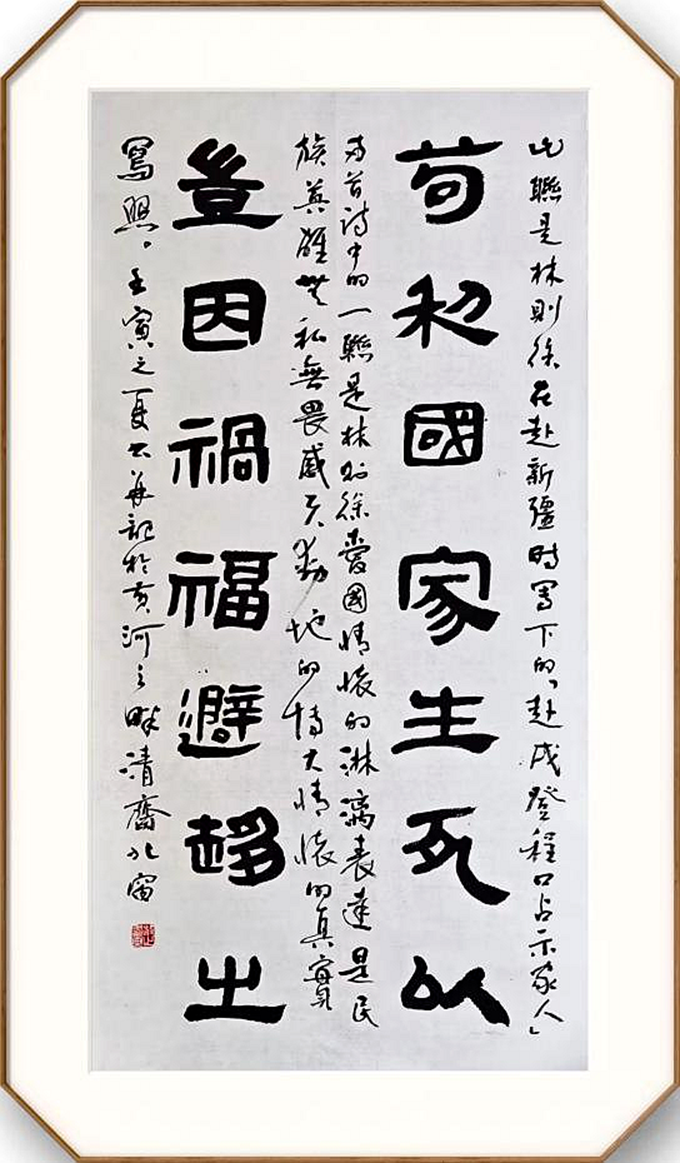 此聯是林則徐在赴新疆時寫下的「赴戍登程口占示家人」
苟利國家生死以
兩首詩中的一聯是林則徐愛國情懷的淋漓表達是民
族英雄無私無畏感天動地的博大情懷的真實
豈因禍福避趨之
寫照。壬寅之夏書并記於黄河之畔清齋北窗